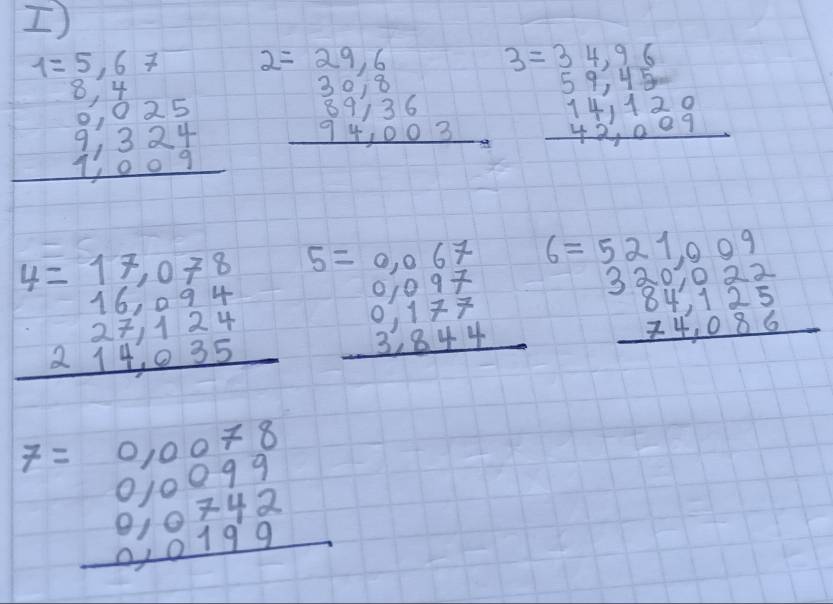 I)
1= 5,67
8,4
0,025
9,324
1,009
2= 29,6
30,8
89,36
94,003
3= 34,96
59,45
14,120
42,009
4= 17,078
16,094
27,124
214,035
5= 0,067
0,097
0,177
3,844
6= 521,009
320,022
84,125
74,086
7= 0,0078
0,0099
0,0742
0,0199